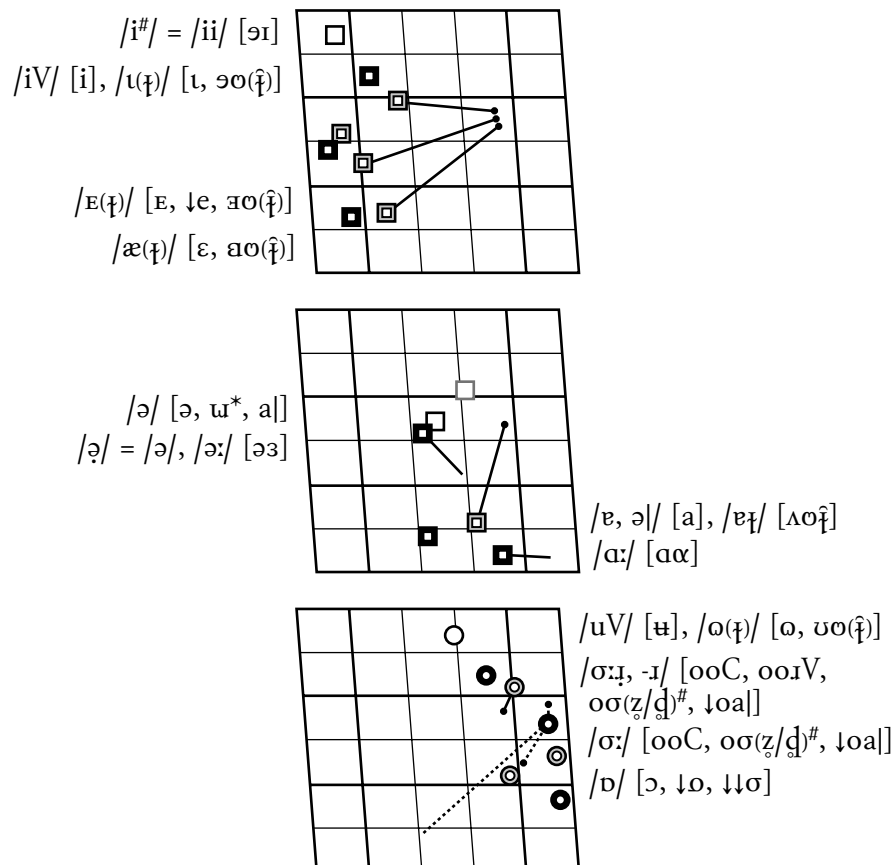 /i#/ = /ii/ [ɘɪ]
/iV/ [i], /ɩ(ɫ̣)/ [ɩ, ɘʊ(ɫ̣̂)]
/ᴇ(ɫ̣)/ [ᴇ, ↓e, ɜʊ(ɫ̣̂)]
/æ(ɫ̣)/ [ɛ, ɑʊ(ɫ̣̂)]
/ə/ [ə, ɯ*, a|]
/ə̣/ = /ə/, /əː/ [əɜ]
/ɐ, ə|/ [a], /ɐɫ̣/ [ʌʊɫ̣̂]
/ɑː/ [ɑα]
/uV/ [ʉ], /ɷ(ɫ̣)/ [ɷ, ʊɷ(ɫ̣̂)]
/σːɹ̣, -ɹ/ [ooC, ooɹV,
oσ(z̥/d̥)#, ↓oa|]
/σː/ [ooC, oσ(z̥/d̥)#, ↓oa|]
/ɒ/ [ɔ, ↓ꭥ, ↓↓σ]